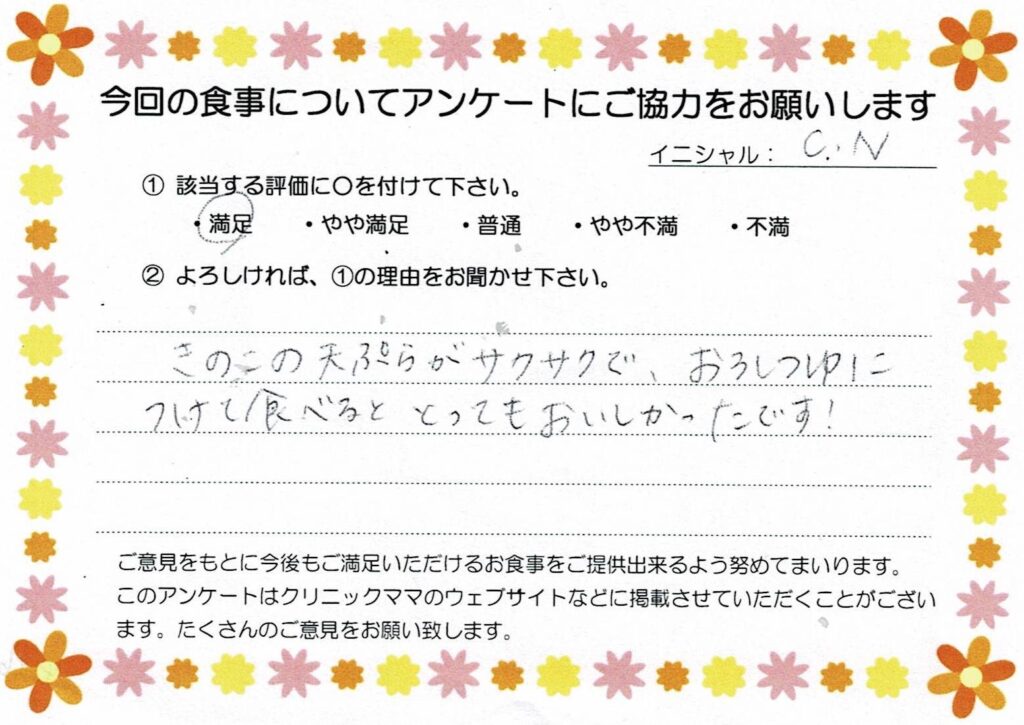 今回の食事についてアンケートにご協力をお願いします
イニシャル: C.N
① 該当する評価に○を付けて下さい。
・満足 ・やや満足 ・普通 ・やや不満 ・不満
② よろしければ、①の理由をお聞かせ下さい。
きのこの天ぷらがサクサクで、おろしつゆに
つけて食べるととってもおいしかったです!
ご意見をもとに今後もご満足いただけるお食事をご提供出来るよう努めてまいります。
このアンケートはクリニックママのウェブサイトなどに掲載させていただくことがござい
ます。たくさんのご意見をお願い致します。